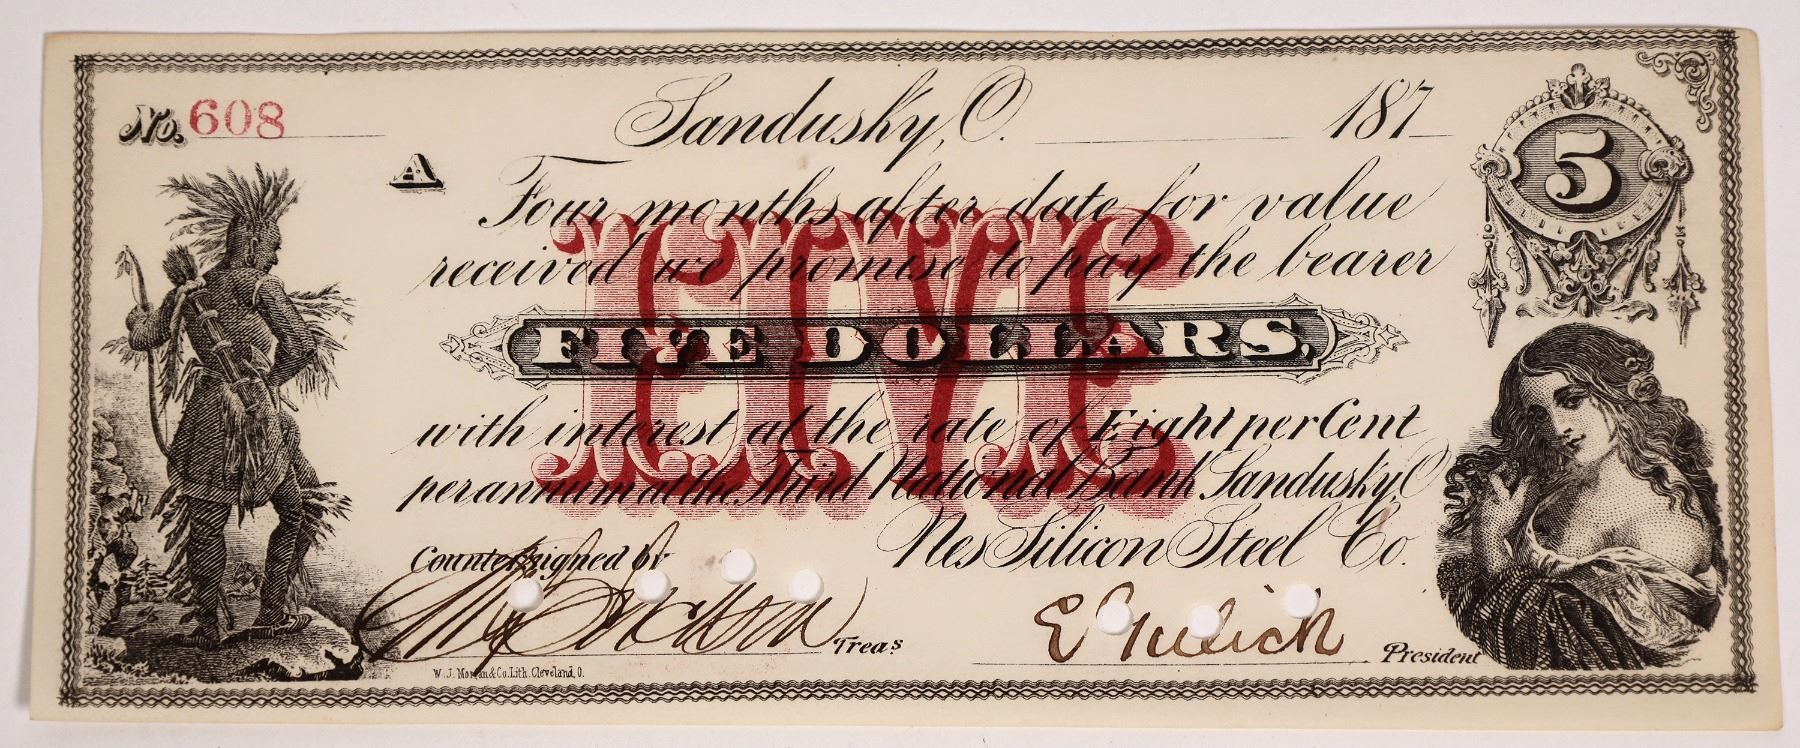 No. 608
Sandusky, O. 187
5
A
Four months after date for value
received we promise to pay the bearer
FIVE
FIVE DOLLARS,
with interest at the rate of Eight per Cent
per annum at the Third National Bank Sandusky, O
Nes Silicon Steel Co.
Countersigned by
Treas
President
W. J. Morgan & Co. Lith. Cleveland, O.